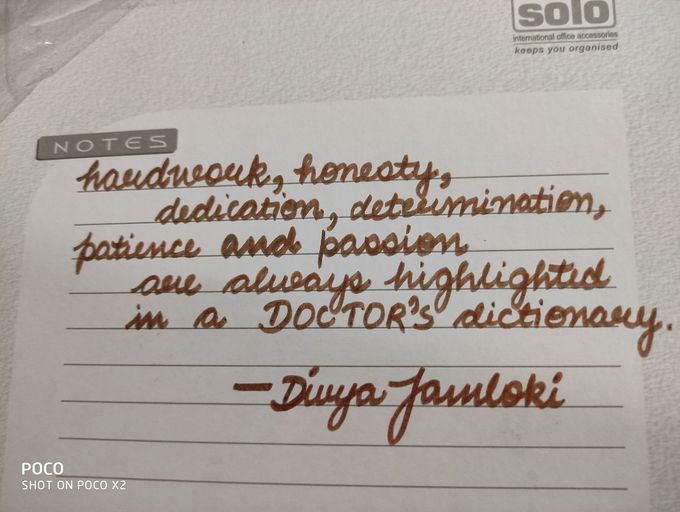 solo
international office accessories
keeps you organised
NOTES
hardwork, honesty,
dedication, determination,
patience and passion
are always highlighted
in a DOCTOR'S dictionary.
— Divya Jamloki
POCO
SHOT ON POCO X2